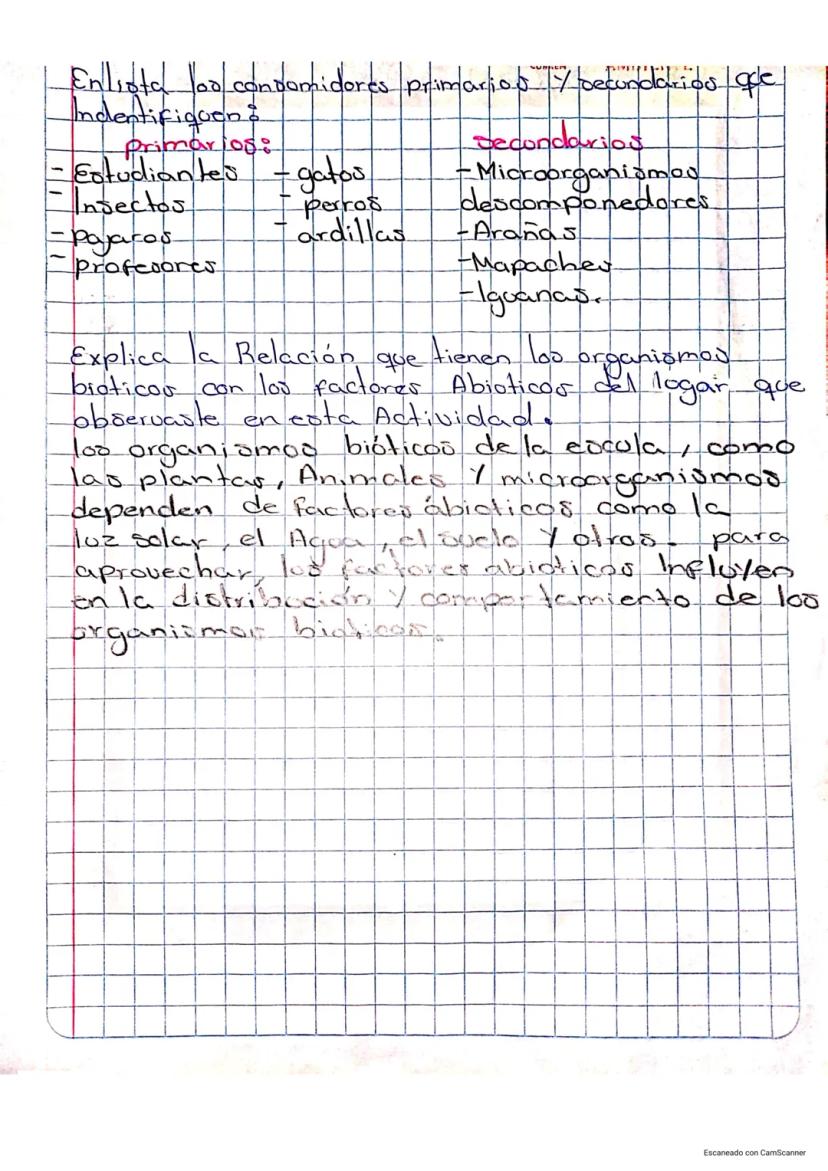 Enlista los consomidores primarios y secundarios que
Indentifiquen:
primarios:
secondarios
- Estudiantes
- Insectos
- Pajaros
- profesores
- gatos
- perros
- ardillas
- Microorganismos
descomponedores
- Arañas
- Mapaches
- Iguanas.
Explica la Relación que tienen los organismos
bioticos con los factores Abioticos del logar que
observaste en esta Actividad.
los organismos bióticos de la escula, como
las plantas, Animales Y microorganismos
dependen de factores ábioticos como la
luz solar, el Agua, el suelo Y otros. para
aprovechar, los factores abioticos Influyen
en la distribución y comportamiento de los
organismos bioticos.
Escaneado con CamScanner